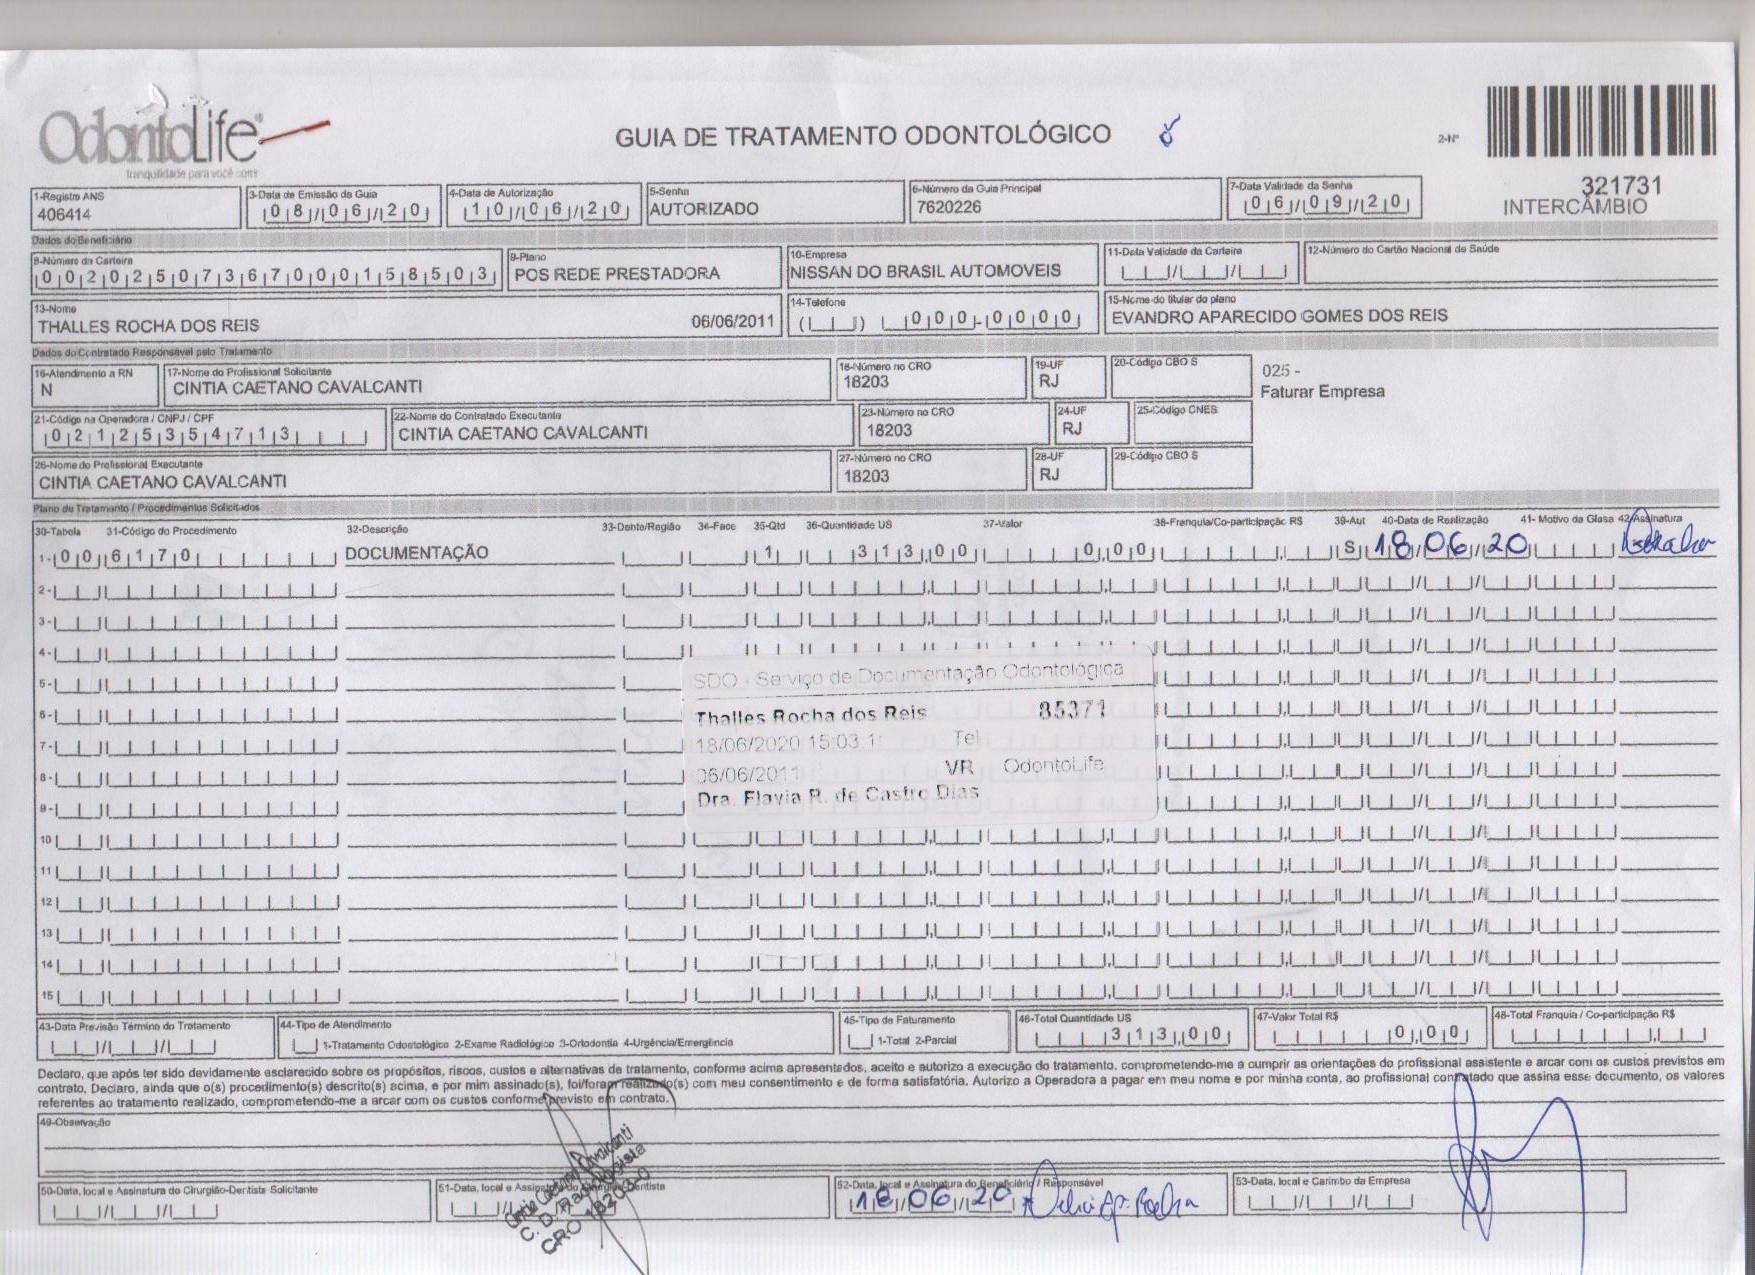 OdontoLife
tranquilidade para você sorrir
GUIA DE TRATAMENTO ODONTOLÓGICO
2-Nº
321731
INTERCÂMBIO
1-Registro ANS
406414
3-Data de Emissão da Guia
08/06/20
4-Data de Autorização
10/06/20
5-Senha
AUTORIZADO
6-Número da Guia Principal
7620226
7-Data Validade da Senha
06/09/20
Dados do Beneficiário
8-Número da Carteira
00202507367000158503
9-Plano
POS REDE PRESTADORA
10-Empresa
NISSAN DO BRASIL AUTOMOVEIS
11-Data Validade da Carteira
12-Número do Cartão Nacional de Saúde
13-Nome
THALLES ROCHA DOS REIS 06/06/2011
14-Telefone
( ) 000-0000
15-Nome do titular do plano
EVANDRO APARECIDO GOMES DOS REIS
Dados do Contratado Responsável pelo Tratamento
16-Atendimento a RN
N
17-Nome do Profissional Solicitante
CINTIA CAETANO CAVALCANTI
18-Número no CRO
18203
19-UF
RJ
20-Código CBO S
025 -
Faturar Empresa
21-Código na Operadora / CNPJ / CPF
02125354713
22-Nome do Contratado Executante
CINTIA CAETANO CAVALCANTI
23-Número no CRO
18203
24-UF
RJ
25-Código CNES
26-Nome do Profissional Executante
CINTIA CAETANO CAVALCANTI
27-Número no CRO
18203
28-UF
RJ
29-Código CBO S
Plano de Tratamento / Procedimentos Solicitados
30-Tabela 31-Código do Procedimento 32-Descrição 33-Dente/Região 34-Face 35-Qtd 36-Quantidade US 37-Valor 38-Franquia/Co-participação R$ 39-Aut 40-Data de Realização 41- Motivo da Glosa 42-Assinatura
1- 006170 DOCUMENTAÇÃO 1 313,00 0,00 S 18/06/20
2-
3-
4-
5-
6-
7-
8-
9-
10
11
12
13
14
15
SDO - Serviço de Documentação Odontológica
Thalles Rocha dos Reis 85371
18/06/2020 15:03:1 Tel
06/06/2011 VR OdontoLife
Dra. Flavia R. de Castro Dias
43-Data Previsão Término do Tratamento
44-Tipo de Atendimento
1-Tratamento Odontológico 2-Exame Radiológico 3-Ortodontia 4-Urgência/Emergência
45-Tipo de Faturamento
1-Total 2-Parcial
46-Total Quantidade US
313,00
47-Valor Total R$
0,00
48-Total Franquia / Co-participação R$
Declaro, que após ter sido devidamente esclarecido sobre os propósitos, riscos, custos e alternativas de tratamento, conforme acima apresentados, aceito e autorizo a execução do tratamento, comprometendo-me a cumprir as orientações do profissional assistente e arcar com os custos previstos em
contrato. Declaro, ainda que o(s) procedimento(s) descrito(s) acima, e por mim assinado(s), foi/foram realizado(s) com meu consentimento e de forma satisfatória. Autorizo a Operadora a pagar em meu nome e por minha conta, ao profissional contratado que assina esse documento, os valores
referentes ao tratamento realizado, comprometendo-me a arcar com os custos conforme previsto em contrato.
49-Observação
50-Data, local e Assinatura do Cirurgião-Dentista Solicitante
51-Data, local e Assinatura do Cirurgião-Dentista
Cintia Caetano Cavalcanti
C. D. Radiologista
CRO 18203-0
52-Data, local e Assinatura do Beneficiário / Responsável
18/06/20
53-Data, local e Carimbo da Empresa